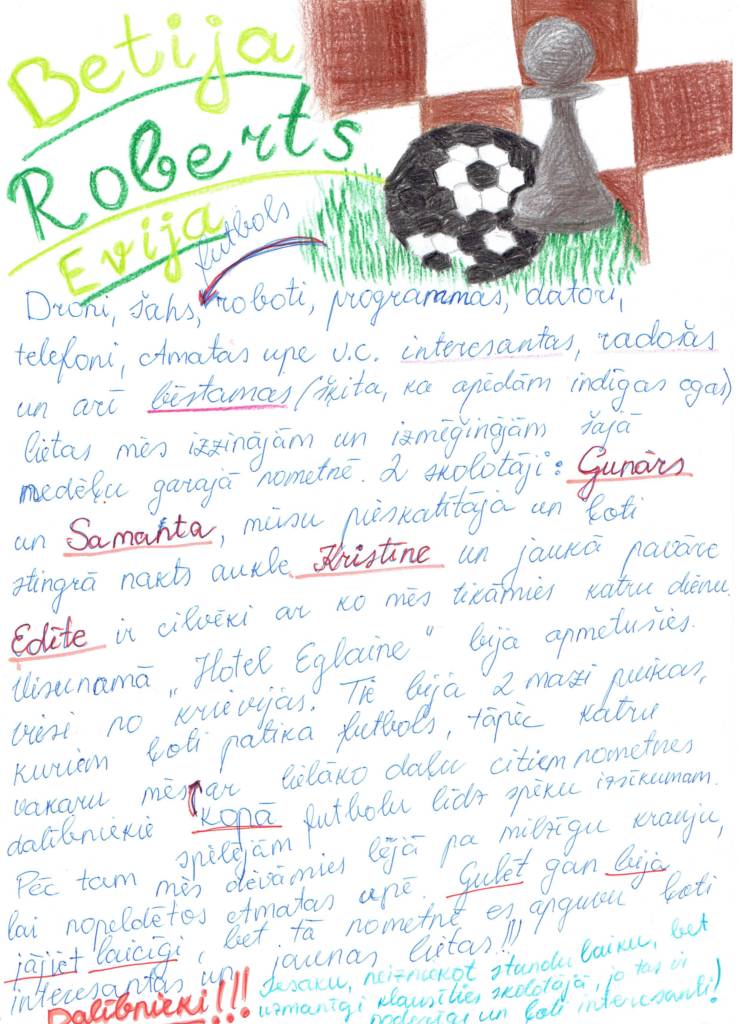 Betija
Roberts
Evija
futbols
Droni, šahs, roboti, programmas, datori,
telefoni, Amatas upe u.c. interesantas, radošas
un arī bīstamas (šķita, ka apēdām indīgas ogas)
lietas mēs izzinājām un izmēģinājām šajā
nedēļu garajā nometnē. 2 skolotāji: Gunārs
un Samanta, mūsu pieskatītāja un ļoti
stingrā nakts aukle Kristīne un jaukā pavāre
Edīte ir cilvēki ar ko mēs tikāmies katru dienu.
Viesu namā "Hotel Eglaine" bija apmetušies
viesi no krievijas. Tie bija 2 mazi puikas,
kuriem ļoti patika futbols, tāpēc katru
vakaru mēs ar lielāko daļu citiem nometnes
dalībniekie kopā futbolu līdz spēku izsīkumam.
spēlējām
Pēc tam mēs devāmies lējā pa milzīgu krauju,
lai nopeldētos Amatas upē. Gulēt gan bija
jājiet laicīgi, bet tā nometnē es apguvu ļoti
interesantas un jaunas lietas!!!
Dalībnieki!!!
Iesaku, neizniekot stundu laiku, bet
uzmanīgi klausīties skolotājā, jo tas ir
noderīgi un ļoti interesanti!